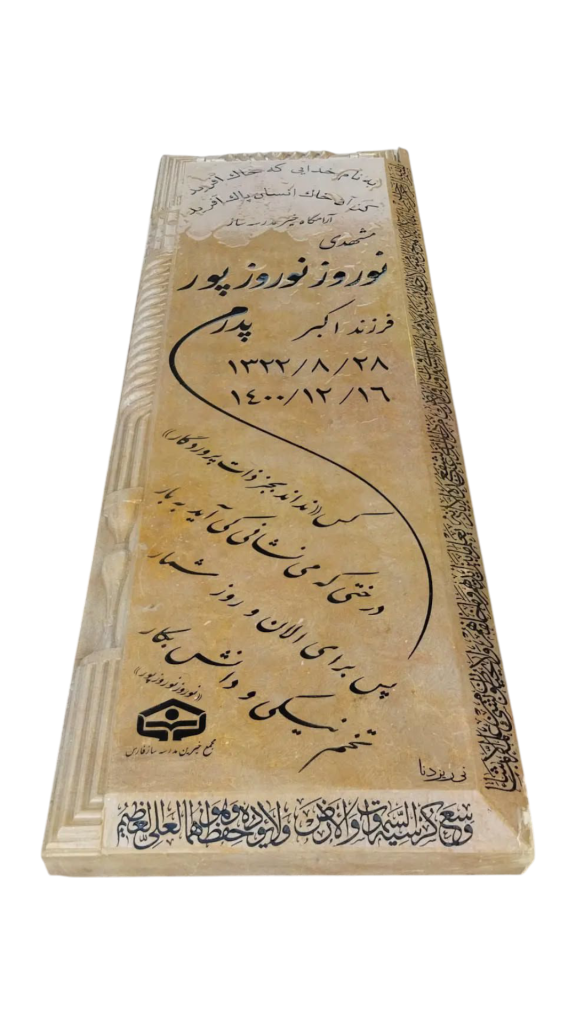 به نام خدایی که خاک آفرید
کز آن خاک انسان پاک آفرید
آرامگاه خیر مدرسه ساز
مشهدی
نوروز نوروز پور
فرزند اکبر
پدرم
۱۳۲۲/۸/۲۸
۱۴۰۰/۱۲/۱۶
کس «نداند بجز ذات پروردگار»
درختی که می نشانی کی آید به بار
پس برای الان و روز شمار
تخم نیکی و دانش بکار
«نوروز نوروز پور»
مجمع خیرین مدرسه ساز فارس
نی ریز دنا
وسع کرسیه السموات والارض ولا یوده حفظهما وهو العلی العظیم